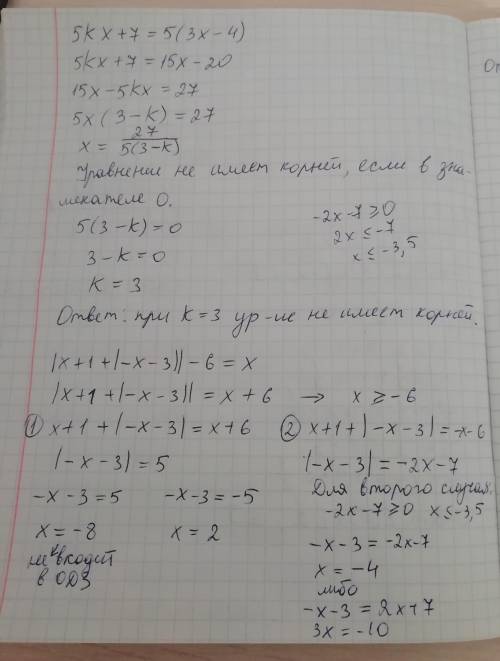 5kx+7=5(3x-4)
5kx+7=15x-20
15x-5kx=27
5x(3-k)=27
x= 27/5(3-k)
Уравнение не имеет корней, если в зна-
менателе 0.
5(3-k)=0
3-k=0
k=3
-2x-7≥0
2x≤-7
x≤-3,5
Ответ: при k=3 ур-ие не имеет корней.
|x+1+|-x-3||-6=x
|x+1+|-x-3||=x+6 → x≥-6
① x+1+|-x-3|=x+6
|-x-3|=5
-x-3=5 -x-3=-5
x=-8 x=2
не входит
в ОДЗ
② x+1+|-x-3|=-x-6
|-x-3|=-2x-7
Для второго случая:
-2x-7≥0 x≤-3,5
-x-3=-2x-7
x=-4
либо
-x-3=2x+7
3x=-10
От